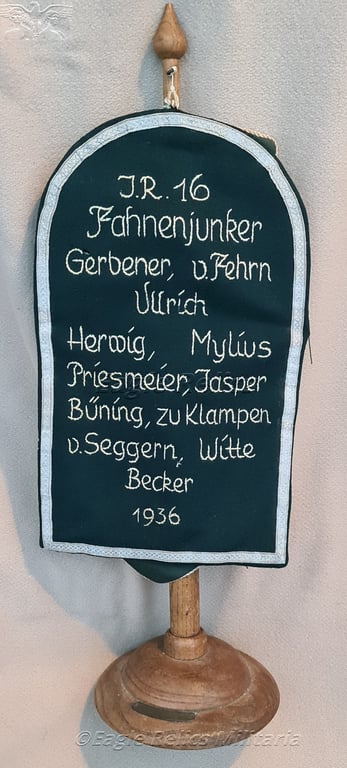 J.R. 16
Fahnenjunker
Gerbener, v. Fehrn
Ullrich
Herwig, Mylius
Priesmeier, Jasper
Büning, zu Klampen
v. Seggern, Witte
Becker
1936
©Eagle Relics Militaria